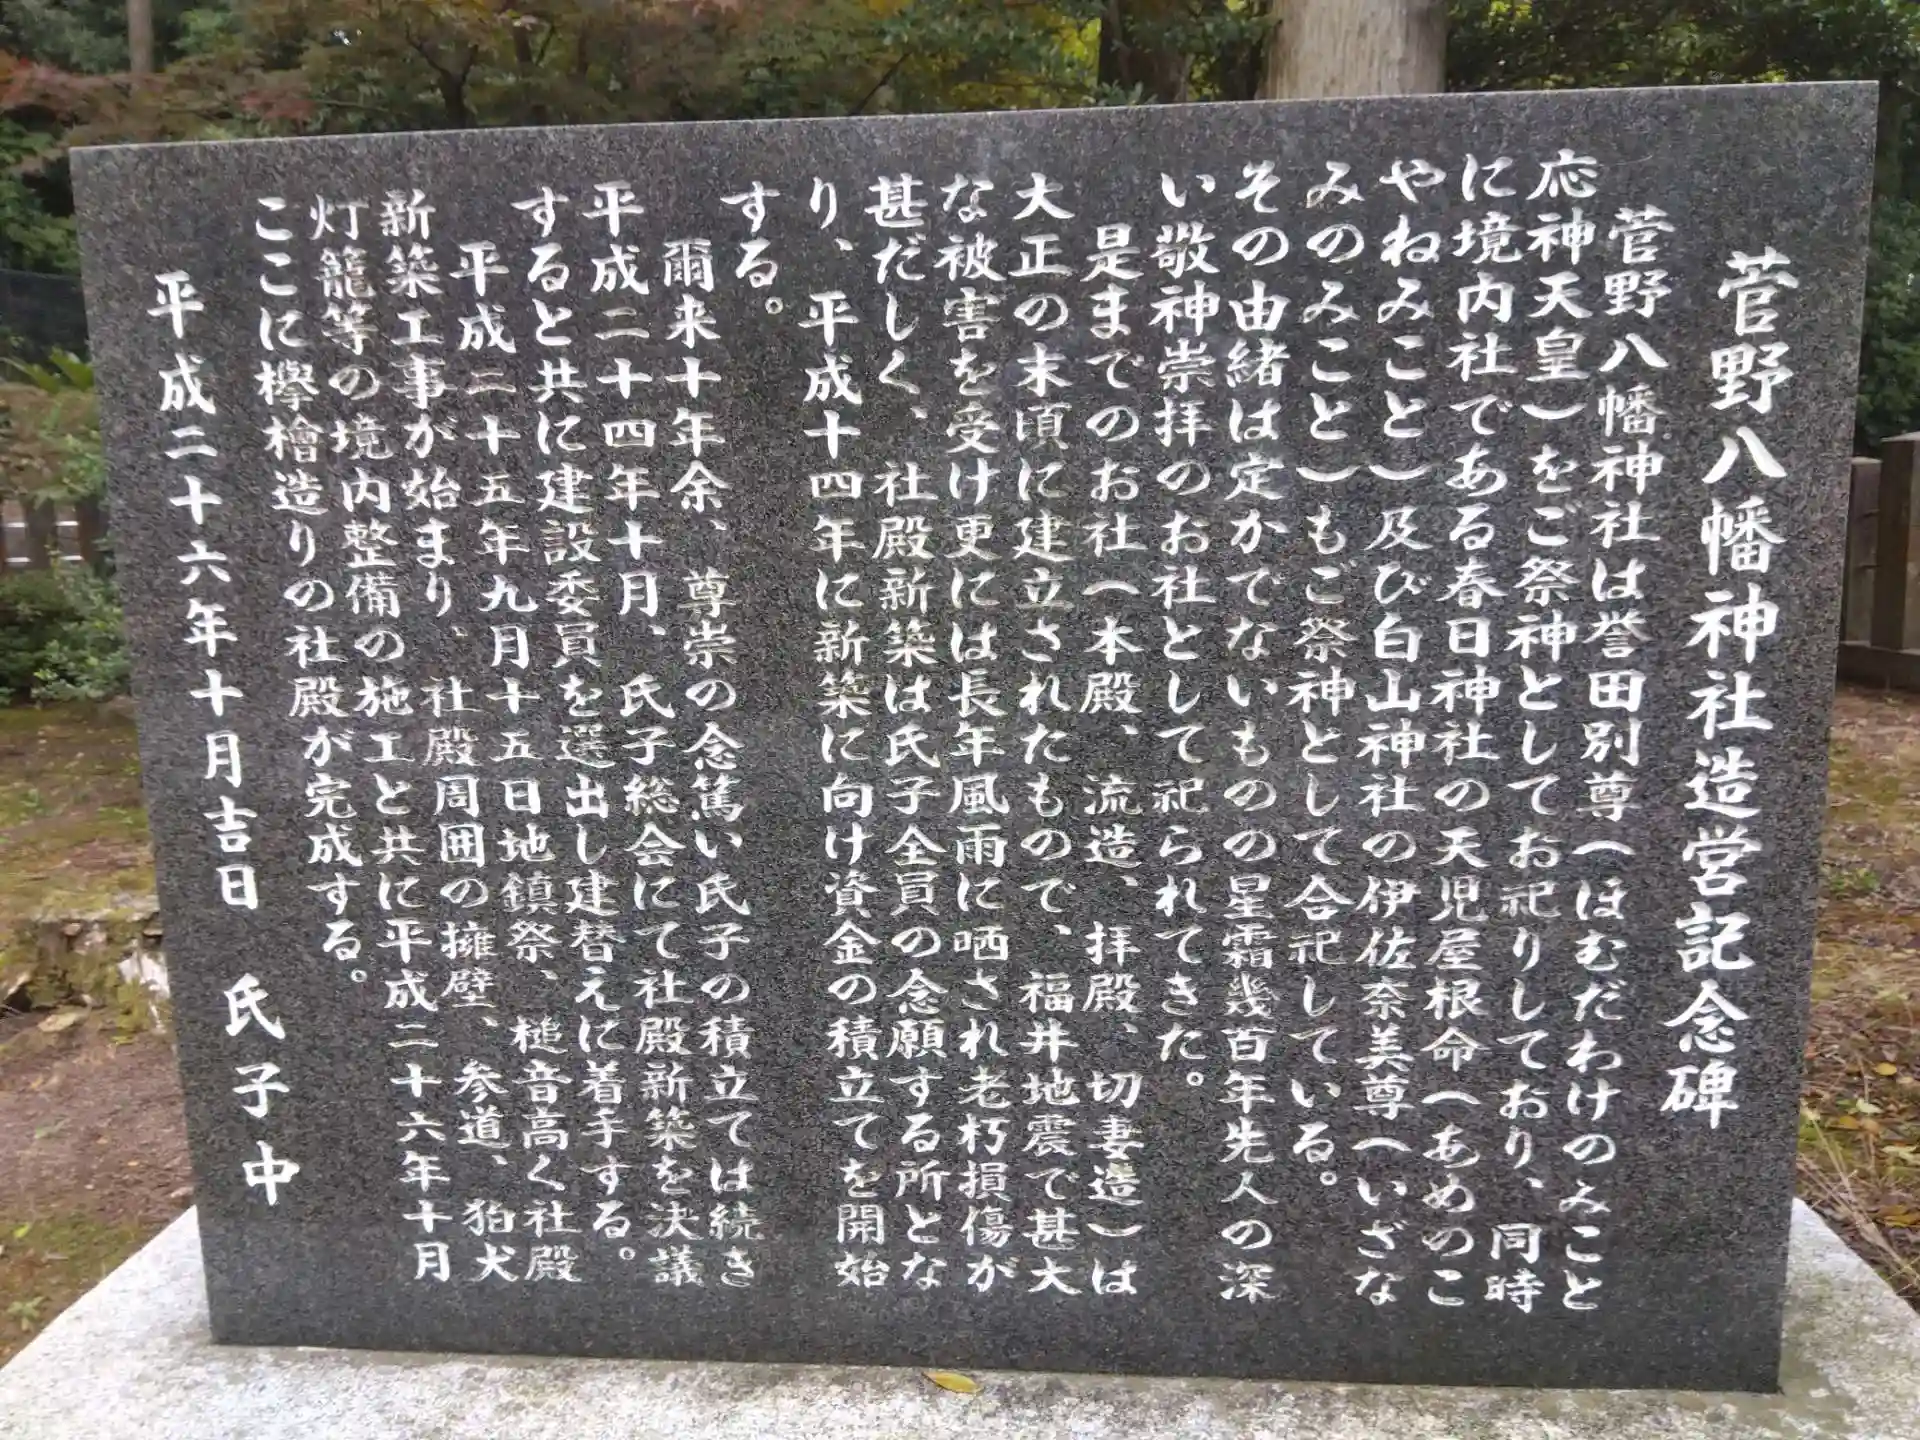 菅野八幡神社造営記念碑
菅野八幡神社は誉田別尊(ほむだわけのみこと
応神天皇)をご祭神としてお祀りしており、同時
に境内社である春日神社の天児屋根命(あめのこ
やねみこと)及び白山神社の伊佐奈美尊(いざな
みのみこと)もご祭神として合祀している。
その由緒は定かでないものの星霜幾百年先人の深
い敬神崇拝のお社として祀られてきた。
是までのお社(本殿、流造、拝殿、切妻造)は
大正の末頃に建立されたもので、福井地震で甚大
な被害を受け更には長年風雨に晒され老朽損傷が
甚だしく、社殿新築は氏子全員の念願する所とな
り、平成十四年に新築に向け資金の積立てを開始
する。
爾来十年余、尊崇の念篤い氏子の積立ては続き
平成二十四年十月、氏子総会にて社殿新築を決議
すると共に建設委員を選出し建替えに着手する。
平成二十五年九月十五日地鎮祭、槌音高く社殿
新築工事が始まり、社殿周囲の擁壁、参道、狛犬
灯籠等の境内整備の施工と共に平成二十六年十月
ここに欅檜造りの社殿が完成する。
平成二十六年十月吉日 氏子中